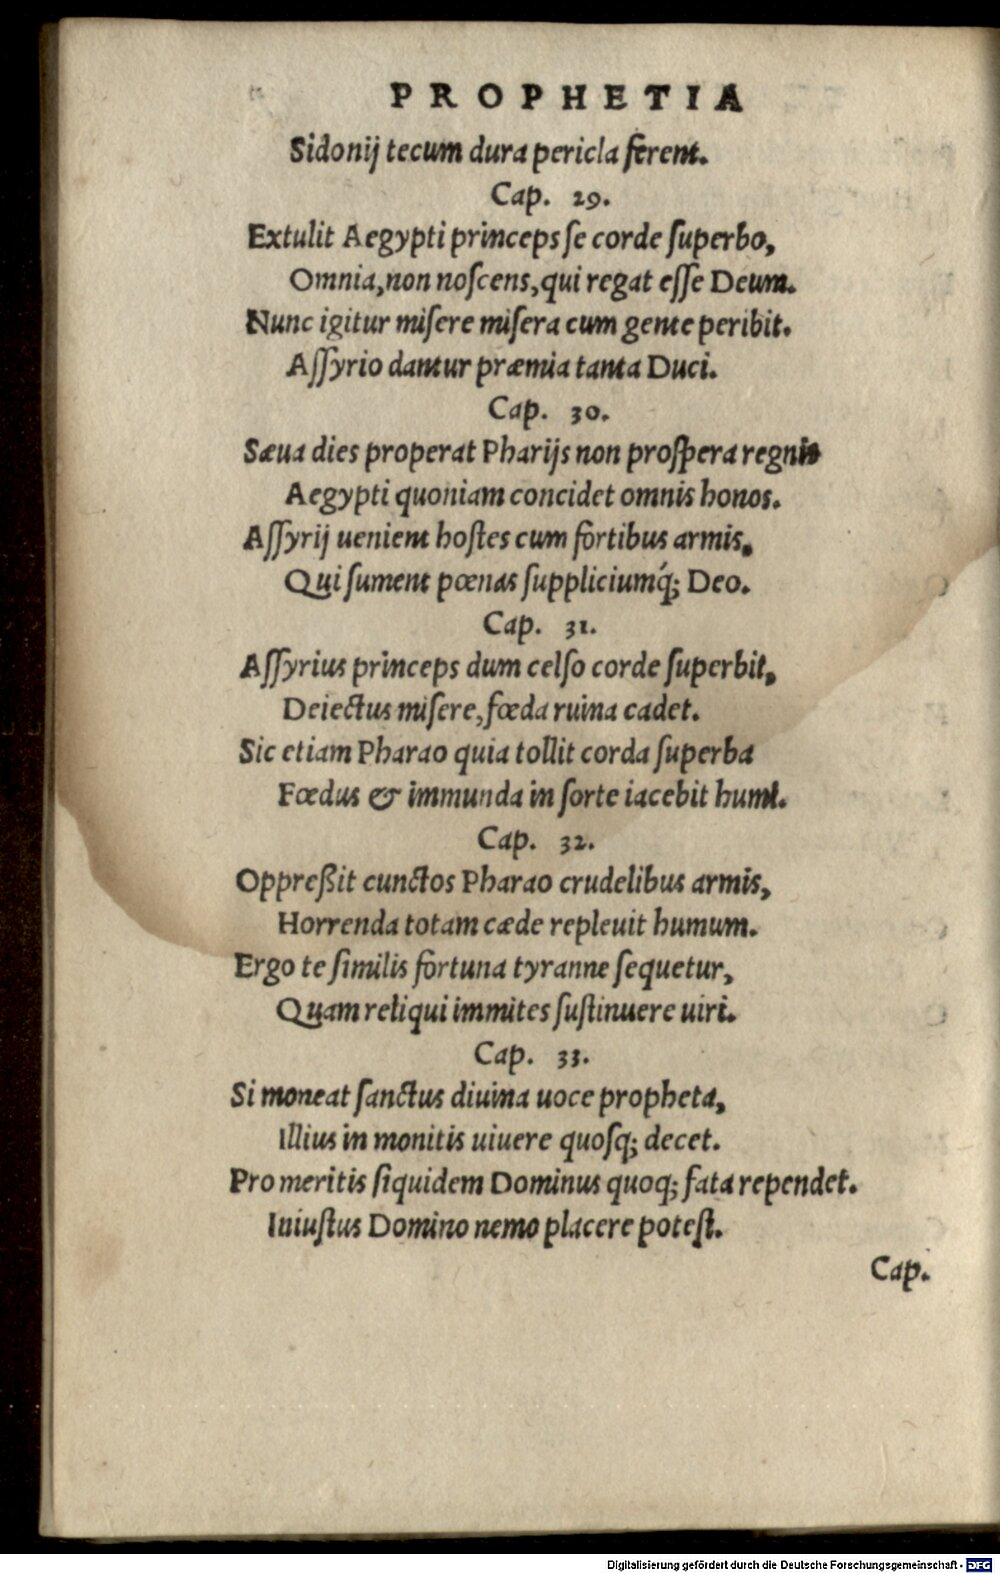 PROPHETIA
Sidonij tecum dura pericla ferent.
Cap. 29.
Extulit Aegypti princeps se corde superbo,
Omnia, non noscens, qui regat esse Deum.
Nunc igitur misere misera cum gente peribit.
Assyrio dantur præmia tanta Duci.
Cap. 30.
Sæua dies properat Pharijs non prospera regnis
Aegypti quoniam concidet omnis honos.
Assyrij uenient hostes cum fortibus armis,
Qui sument pœnas suppliciumq́; Deo.
Cap. 31.
Assyrius princeps dum celso corde superbit,
Deiectus misere, fœda ruina cadet.
Sic etiam Pharao quia tollit corda superba
Fœdus & immunda in sorte iacebit humi.
Cap. 32.
Oppreßit cunctos Pharao crudelibus armis,
Horrenda totam cæde repleuit humum.
Ergo te similis fortuna tyranne sequetur,
Quam reliqui immites sustinuere uiri.
Cap. 33.
Si moneat sanctus diuina uoce propheta,
Illius in monitis uiuere quosq; decet.
Pro meritis siquidem Dominus quoq; fata rependet.
Iniustus Domino nemo placere potest.
Cap.
Digitalisierung gefördert durch die Deutsche Forschungsgemeinschaft - DFG